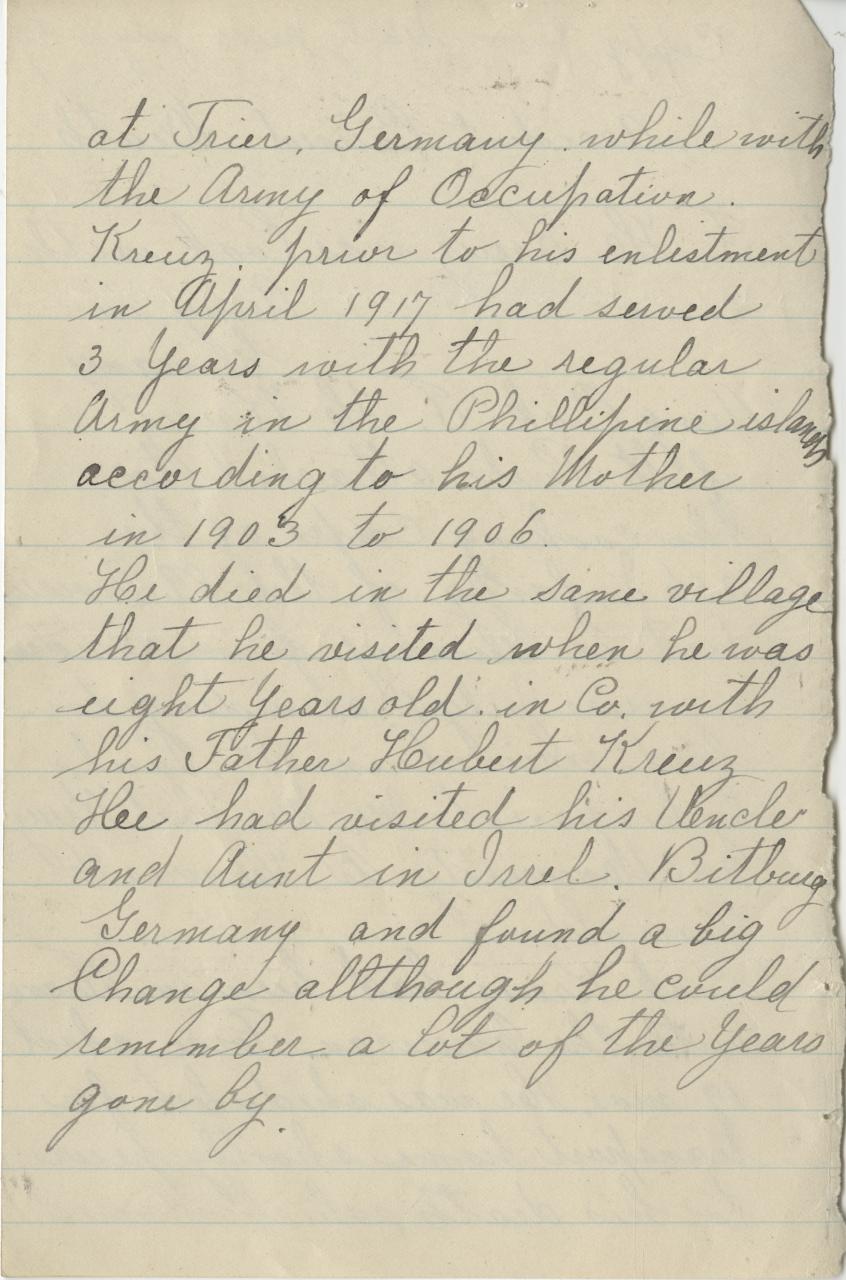 at Trier, Germany. while with
the Army of Occupation.
Kreuz. prior to his enlistment
in April 1917 had served
3 Years with the regular
Army in the Phillipine islands
according to his Mother
in 1903 to 1906.
He died in the same village
that he visited when he was
eight Years old. in Co. with
his Father Hubert Kreuz
Hee had visited his Uencle
and Aunt in Irrel. Bitburg
Germany and found a big
Change allthough he could
remember a lot of the Years
gone by.